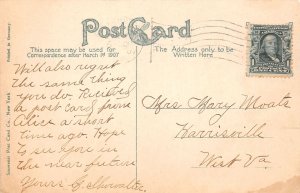 Post Card
This space may be used for
Correspondence after March 1st 1907
The Address only to be
Written Here
Will also regret
the same thing
you do. Received
a post card from
Alice a short
time ago. Hope
to see you in
the near future
Yours
Mrs Mary Moats
Harrisville
West Va.
Souvenir Post Card Co., New York.
Printed in Germany